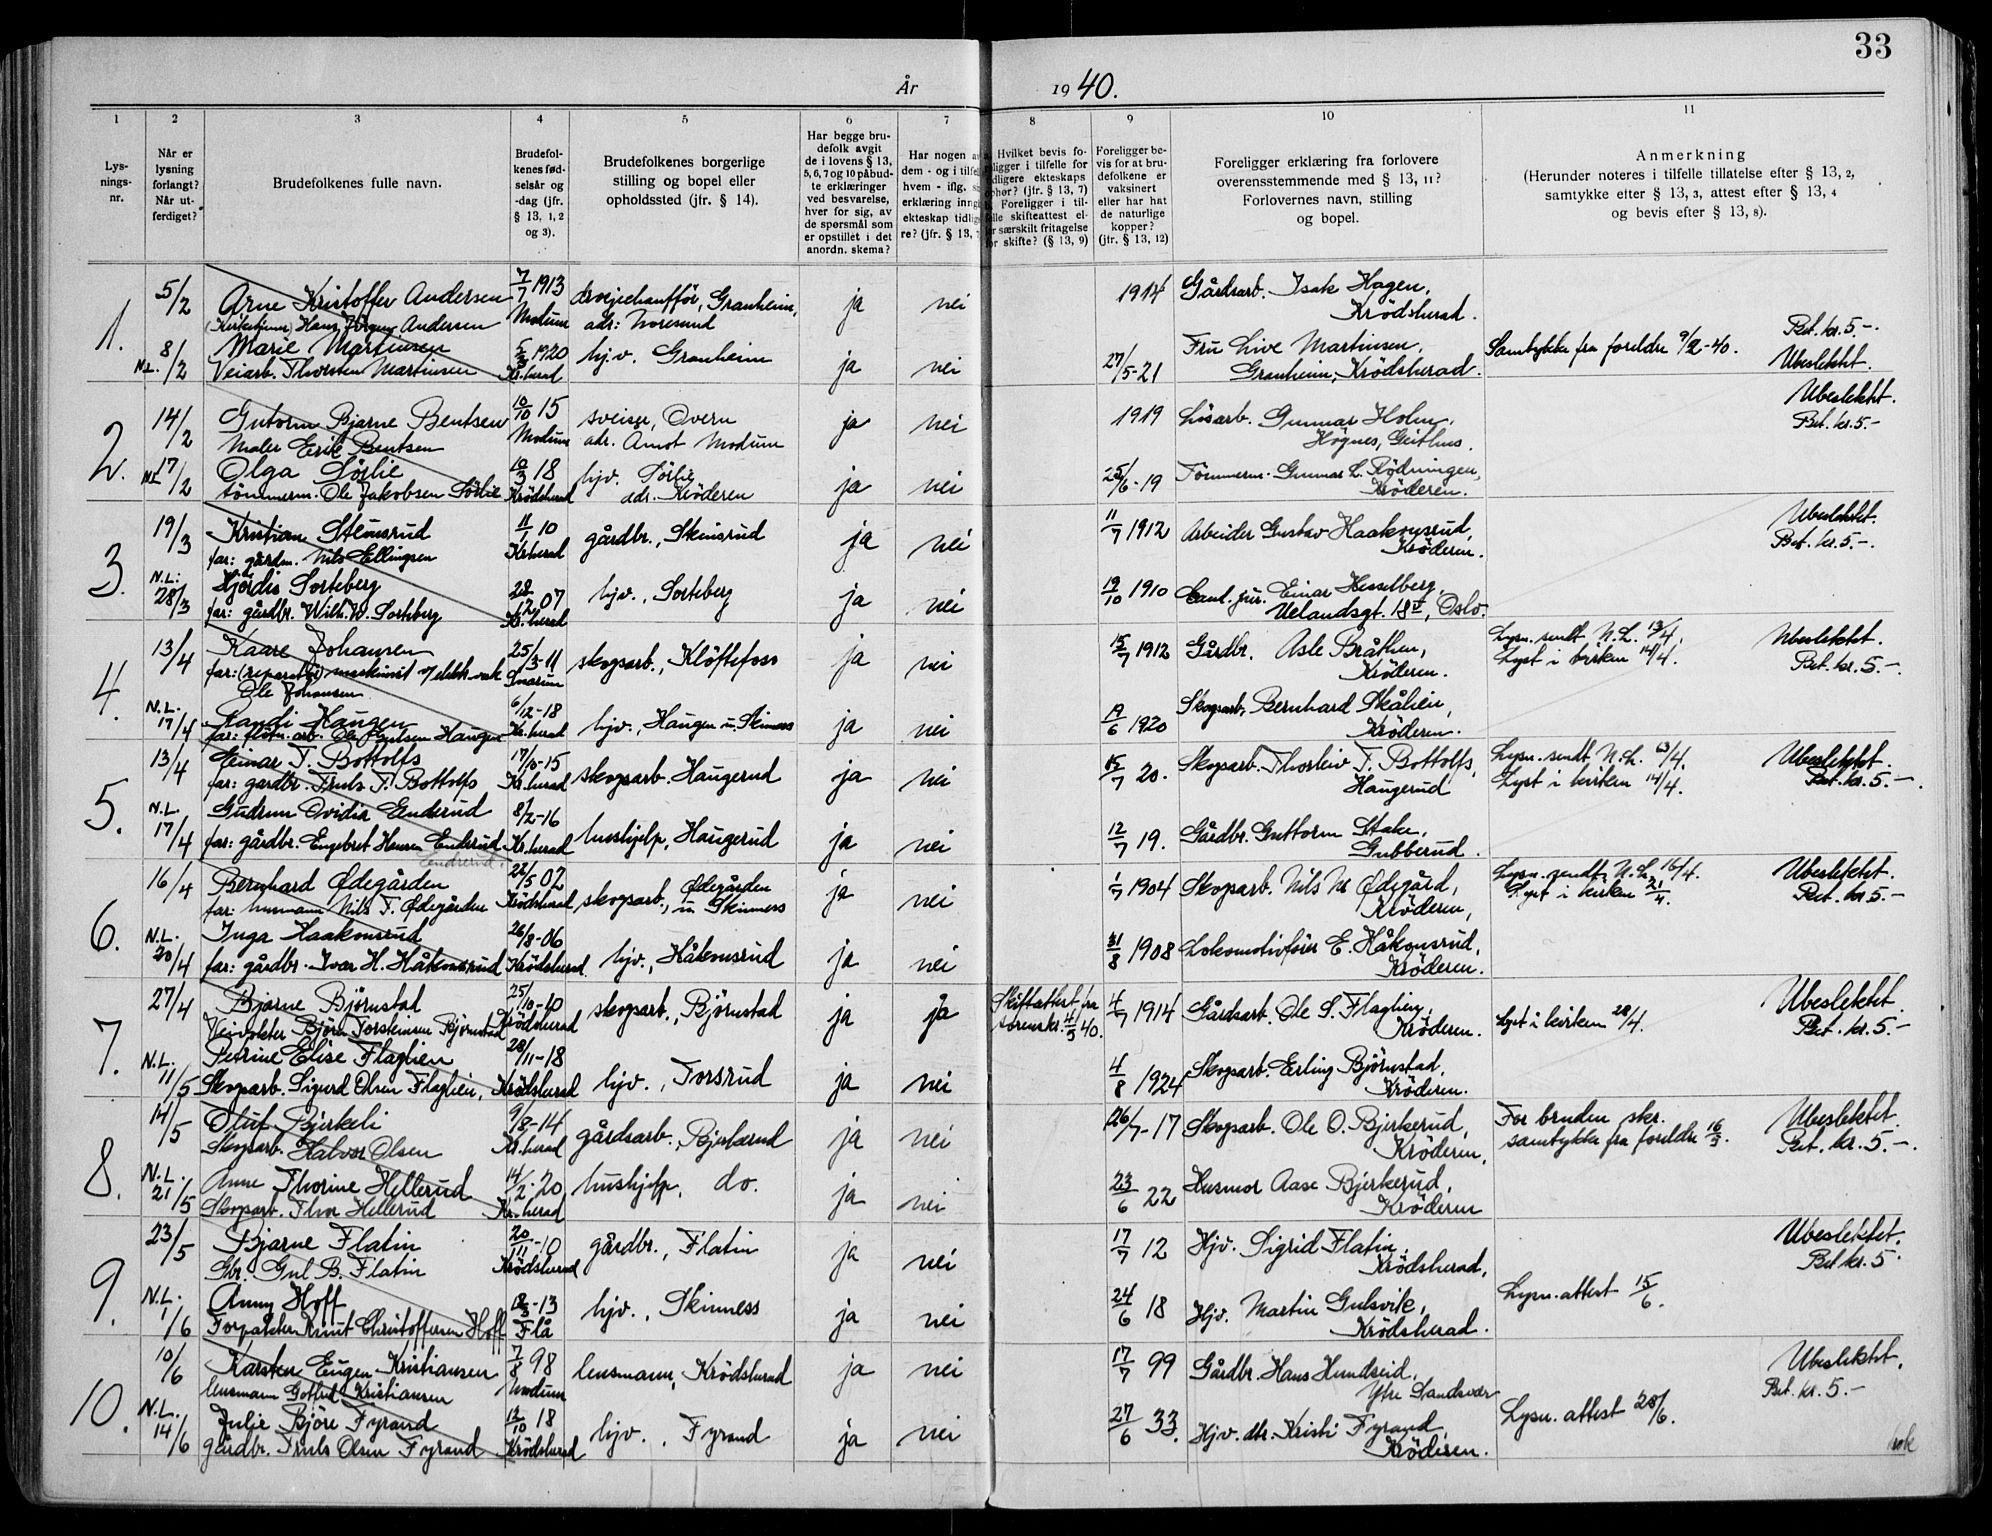 33
År 1940.
1
2
3
4
5
6
7
8
9
10
11
Lys-
nings-
nr.
Når er
lysning
forlangt?
Når ut-
ferdiget?
Brudefolkenes fulle navn.
Brudefol-
kenes fød-
selsår og
-dag (jfr.
§ 13, 1, 2
og 3).
Brudefolkenes borgerlige
stilling og bopel eller
opholdssted (jfr. § 14).
Har begge bru-
defolk avgit
de i lovens § 13,
5, 6, 7 og 10 påbud-
te erklæringer
ved besvarelse,
hver for sig, av
de spørsmål som
er opstillet i det
anordn. skema?
Har nogen a
dem - og i tilfel
hvem - iflg. s
erklæring inng
ekteskap tidlig
re? (jfr. § 13, 7
Hvilket bevis fo-
religger i tilfelle for
tidligere ekteskaps
ophør? (jfr. § 13, 7)
Foreligger i til-
felle skifteattest el-
er særskilt fritagelse
for skifte? (§ 13, 9)
Foreligger be-
vis for at bru-
defolkene er
vaksinert
eller har hat
de naturlige
kopper?
(jfr. § 13, 12)
Foreligger erklæring fra forlovere
overensstemmende med § 13, 11?
Forlovernes navn, stilling
og bopel.
Anmerkning
(Herunder noteres i tilfelle tillatelse efter § 13, 2,
samtykke efter § 13, 3, attest efter § 13, 4
og bevis efter § 13, 8).
1. 5/2 Arne Kristoffer Andersen 7/7 1913 Granheim, ja nei 1914 Gårdsarb. Isak Hagen,
(Kirketjener) Hans Jörgen Andersen Modum adr: Noresund Krödsherad. Bet. kr. 5-.
8/2 Marie Martinsen 1920 hjv. Granheim ja nei 27/5-21 Fru Live Martinsen, Samtykke fra foreldre 9/2-40. Ubeslektet.
N.L. Veiarb. Thorsten Martinsen Kr.herad Granheim, Krödsherad.
2. 14/2 Gutorm Bjarne Bentsen 10/10 15 sveiser, Overn ja nei 1919 Løsarb. Gunnar Holm, Ubeslektet.
Maler Erik Bentsen Modum adr. Åmot Modum Högnes, Geithus. Bet. kr. 5.-
N.L. 17/2 Olga Sørlie 10/3 18 hjv. Sørlie ja nei 25/6-19 Tömmerm. Gunnar L. Rødningen,
tömmerm. Ole Jakobsen Sørlie Krödsherad adr. Krøderen Krøderen.
3. 19/3 Kristian Stensrud 11/1 10 gårdbr., Skinsrud ja nei 11/7 1912 Arbeider Gustav Haakonsrud, Ubeslektet.
far: gårdm. Nils Ellingsen Kr.herad Krøderen. Bet. kr. 5.-
N.L: 28/3 Hjördis Sorteberg 07 hjv., Sorteberg ja nei 19/10 1910 Cand. jur. Einar Hesselberg,
far: gårdbr. Wilh. W. Sorteberg Kr.herad Uelandsgt. 18 IV, Oslo.
4. 13/4 Kaare Johansen 25/3-11 skogsarb., Klöftefoss ja nei 15/7 1912 Gårdbr. Asle Bråthen, Lysn. sendt N.L. 13/4. Ubeslektet.
far: (reparatör) maskinist v/ elektr. verk Snarum Krøderen. Lyst i kirken 14/4. Bet. kr. 5.-
Ole Johansen
N.L. 17/4 Randi Haugen 6/12-18 hjv., Haugen u. Skinnes ja nei 19/6 1920 Skogsarb. Bernhard Skålien,
far: fløtn. arb. Ole Haugen Kr.herad Krøderen.
5. 13/4 Heimar T. Bottolfs 17/10-15 skogsarb. Haugerud ja nei 15/7 20. Skogsarb. Thorleiv T. Bottolfs, Lysn. sendt N.L. 13/4. Ubeslektet.
far: gardbr. Truls T. Bottolfs Kr.herad Haugerud Lyst i kirken 14/4. Bet. kr. 5.-.
N.L. 17/4 Gudrun Ovidia Enderud 8/2-16 hushjelp, Haugerud ja nei 12/7 19. Gårdbr. Guttorm Stake,
far: gårdbr. Engebret Hansen Enderud Kr.herad Gubberud.
Endrerud.
6. 16/4 Bernhard Ødegården 02 skogsarb., Ødegården ja nei 1/7 1904 Skogsarb. Nils N. Ødegård, Lysn. sendt N.L. 16/4. Ubeslektet.
far: husmann Nils T. Ødegården Krödsherad u. Skinnes Krøderen, Lyst i kirken 21/4. Bet. kr. 5.-
N.L. 20/4 Inga Haakonsrud 26/8-06 hjv., Håkonsrud ja nei 31/8 1908 Lokomotivfører E. Håkonsrud,
far: gårdbr. Ivar H. Håkonsrud Krödsherad. Krøderen.
7. 27/4 Bjarne Björnstad 25/10-10 skogsarb., Björnstad ja ja Skifteattest fra 4/7 1914 Gårdsarb. Ole S. Flaglien, Lyst i kirken 28/4. Ubeslektet
Veivokter Björn Torstensen Björnstad Krödsherad sorenskr. 4/5 40. Krøderen. Bet. kr. 5.-
N.L. 11/5 Petrine Elise Flaglien 28/11-18 hjv., Forsrud ja nei 4/8 1924 Skogsarb. Erling Björnstad,
Skogsarb. Sigurd Olsen Flaglien, Krödsherad Krøderen.
8. 14/5 Oluf Bjerkeli 9/8-14 gårdsarb., Bjerkerud ja nei 26/7-17 Skogsarb. Ole O. Bjerkerud, For bruden skr. Ubeslektet.
Skogsarb. Halvor Olsen Kr.herad Krøderen, samtykke fra foreldre 16/5. Bet. kr. 5.-.
N.L. 21/5 Anne Thorine Hellerud 14/2-20 hushjelp, do. ja nei 23/6 22 Husmor Aase Bjerkerud,
Skogsarb. Thor Hellerud Kr.herad Krøderen
9. 23/5 Bjarne Flatin 20/11-10 gårdbr., Flatin ja nei 17/7 12 Hjv. Sigrid Flatin, Ubeslektet.
Gbr. Gul B. Flatin Krödsherad Krödsherad, Bet kr. 5.-
N.L. 1/6 Anny Hoff -13 hjv., Skinness ja nei 24/6 18 Hjv. Martin Gulsvik, Lysn. attest 15/6.
Forpakter Knut Christoffersen Hoff Flå Krödsherad.
10. 10/6 Karsten Eugen Kristiansen 7/8 98 lensmann, Krödsherad ja nei 17/7 99 Gårdbr. Hans Hundseid, Ubeslektet,
lensmann Gotfred Kristiansen Modum Ytre Sandsvær Bet. kr. 5.-
N.L. 14/6 Julie Björe Fyrand 12/10 18 hjv., Fyrand ja nei 27/6 33. Hjv. dtr. Kristi Fyrand, Lysn. attest 28/6.
gårdbr. Truls Olsen Fyrand Krödsherad Krøderen.